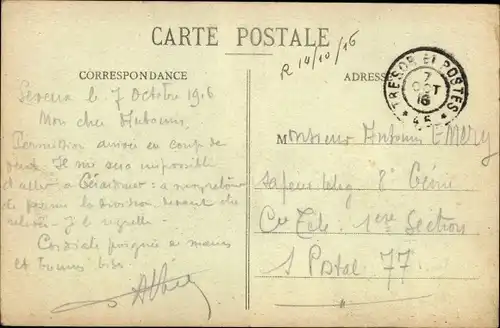 CARTE POSTALE
R 14/10/16
CORRESPONDANCE
ADRESSE
TRESOR ET POSTES
7
OCT
16
* 45 *
le 7 Octobre 1916
Mon cher Antonin
Permission arrivée en coup de
vent. Il me sera impossible
d'aller à Gérardmer :
la division devant être
relevée - Je le regrette -
Cordiale poignée de mains
et bonnes
Monsieur Antonin Emery
Sapeur télég. 8e Génie
Cie Tele. 1ere Section
S Postal 77